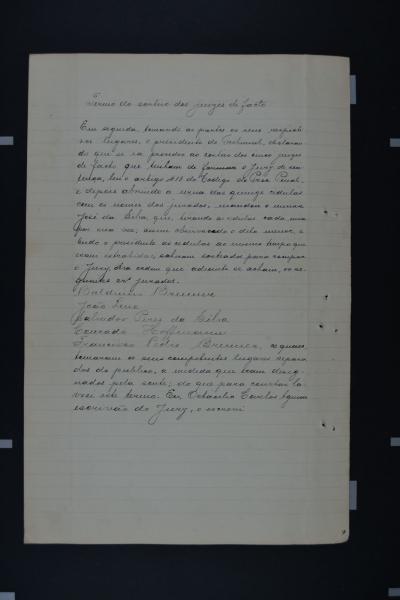 Termo do sorteio dos juizes de facto
Em seguida, tomando as partes os seus respecti
vos lugares, o presidente do Tribunal, declaran
do que se ia proceder ao sorteio dos cinco juizes
de facto que tinham de formar o Jury de sen
tença, leu o artigo do Codigo do Proc. Penal,
e depois abrindo a urna das quinze cedulas
com os nomes dos jurados, mandou o menor
José da Silva, que, tirando as cedulas cada uma
por sua vez; assim observado o dito menor, e
lendo o presidente as cedulas ao mesmo tempo que
eram extrahidas, sahiram sorteados para compor
o Jury, na ordem que adiante se acham, os se
guintes jurados.
Balduino Brenner
João Lena
Salvador Pires da Silva
Conrado Hoffmann
Francisco Pedro Brenner, os quaes
tomaram os seus competentes lugares separa
dos do publico, a medida que eram desig
nados pela sorte; do que para constar la
vrei este termo. Eu,
escrivão do Jury, o escrevi